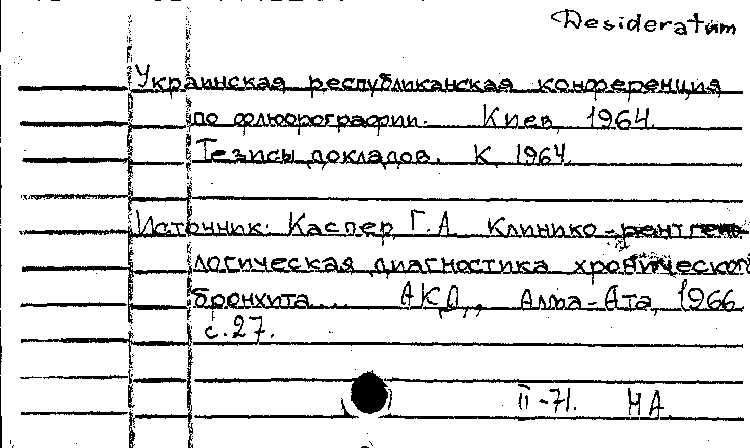 Desideratum
Украинская республиканская конференция
по флюорографии. Киев, 1964.
Тезисы докладов. К. 1964.
Источник: Каспер, Г.А. Клинико-рентгено-
логическая диагностика хронического
бронхита... АКД,, Алма-Ата, 1966
с.27.
II-71. НА